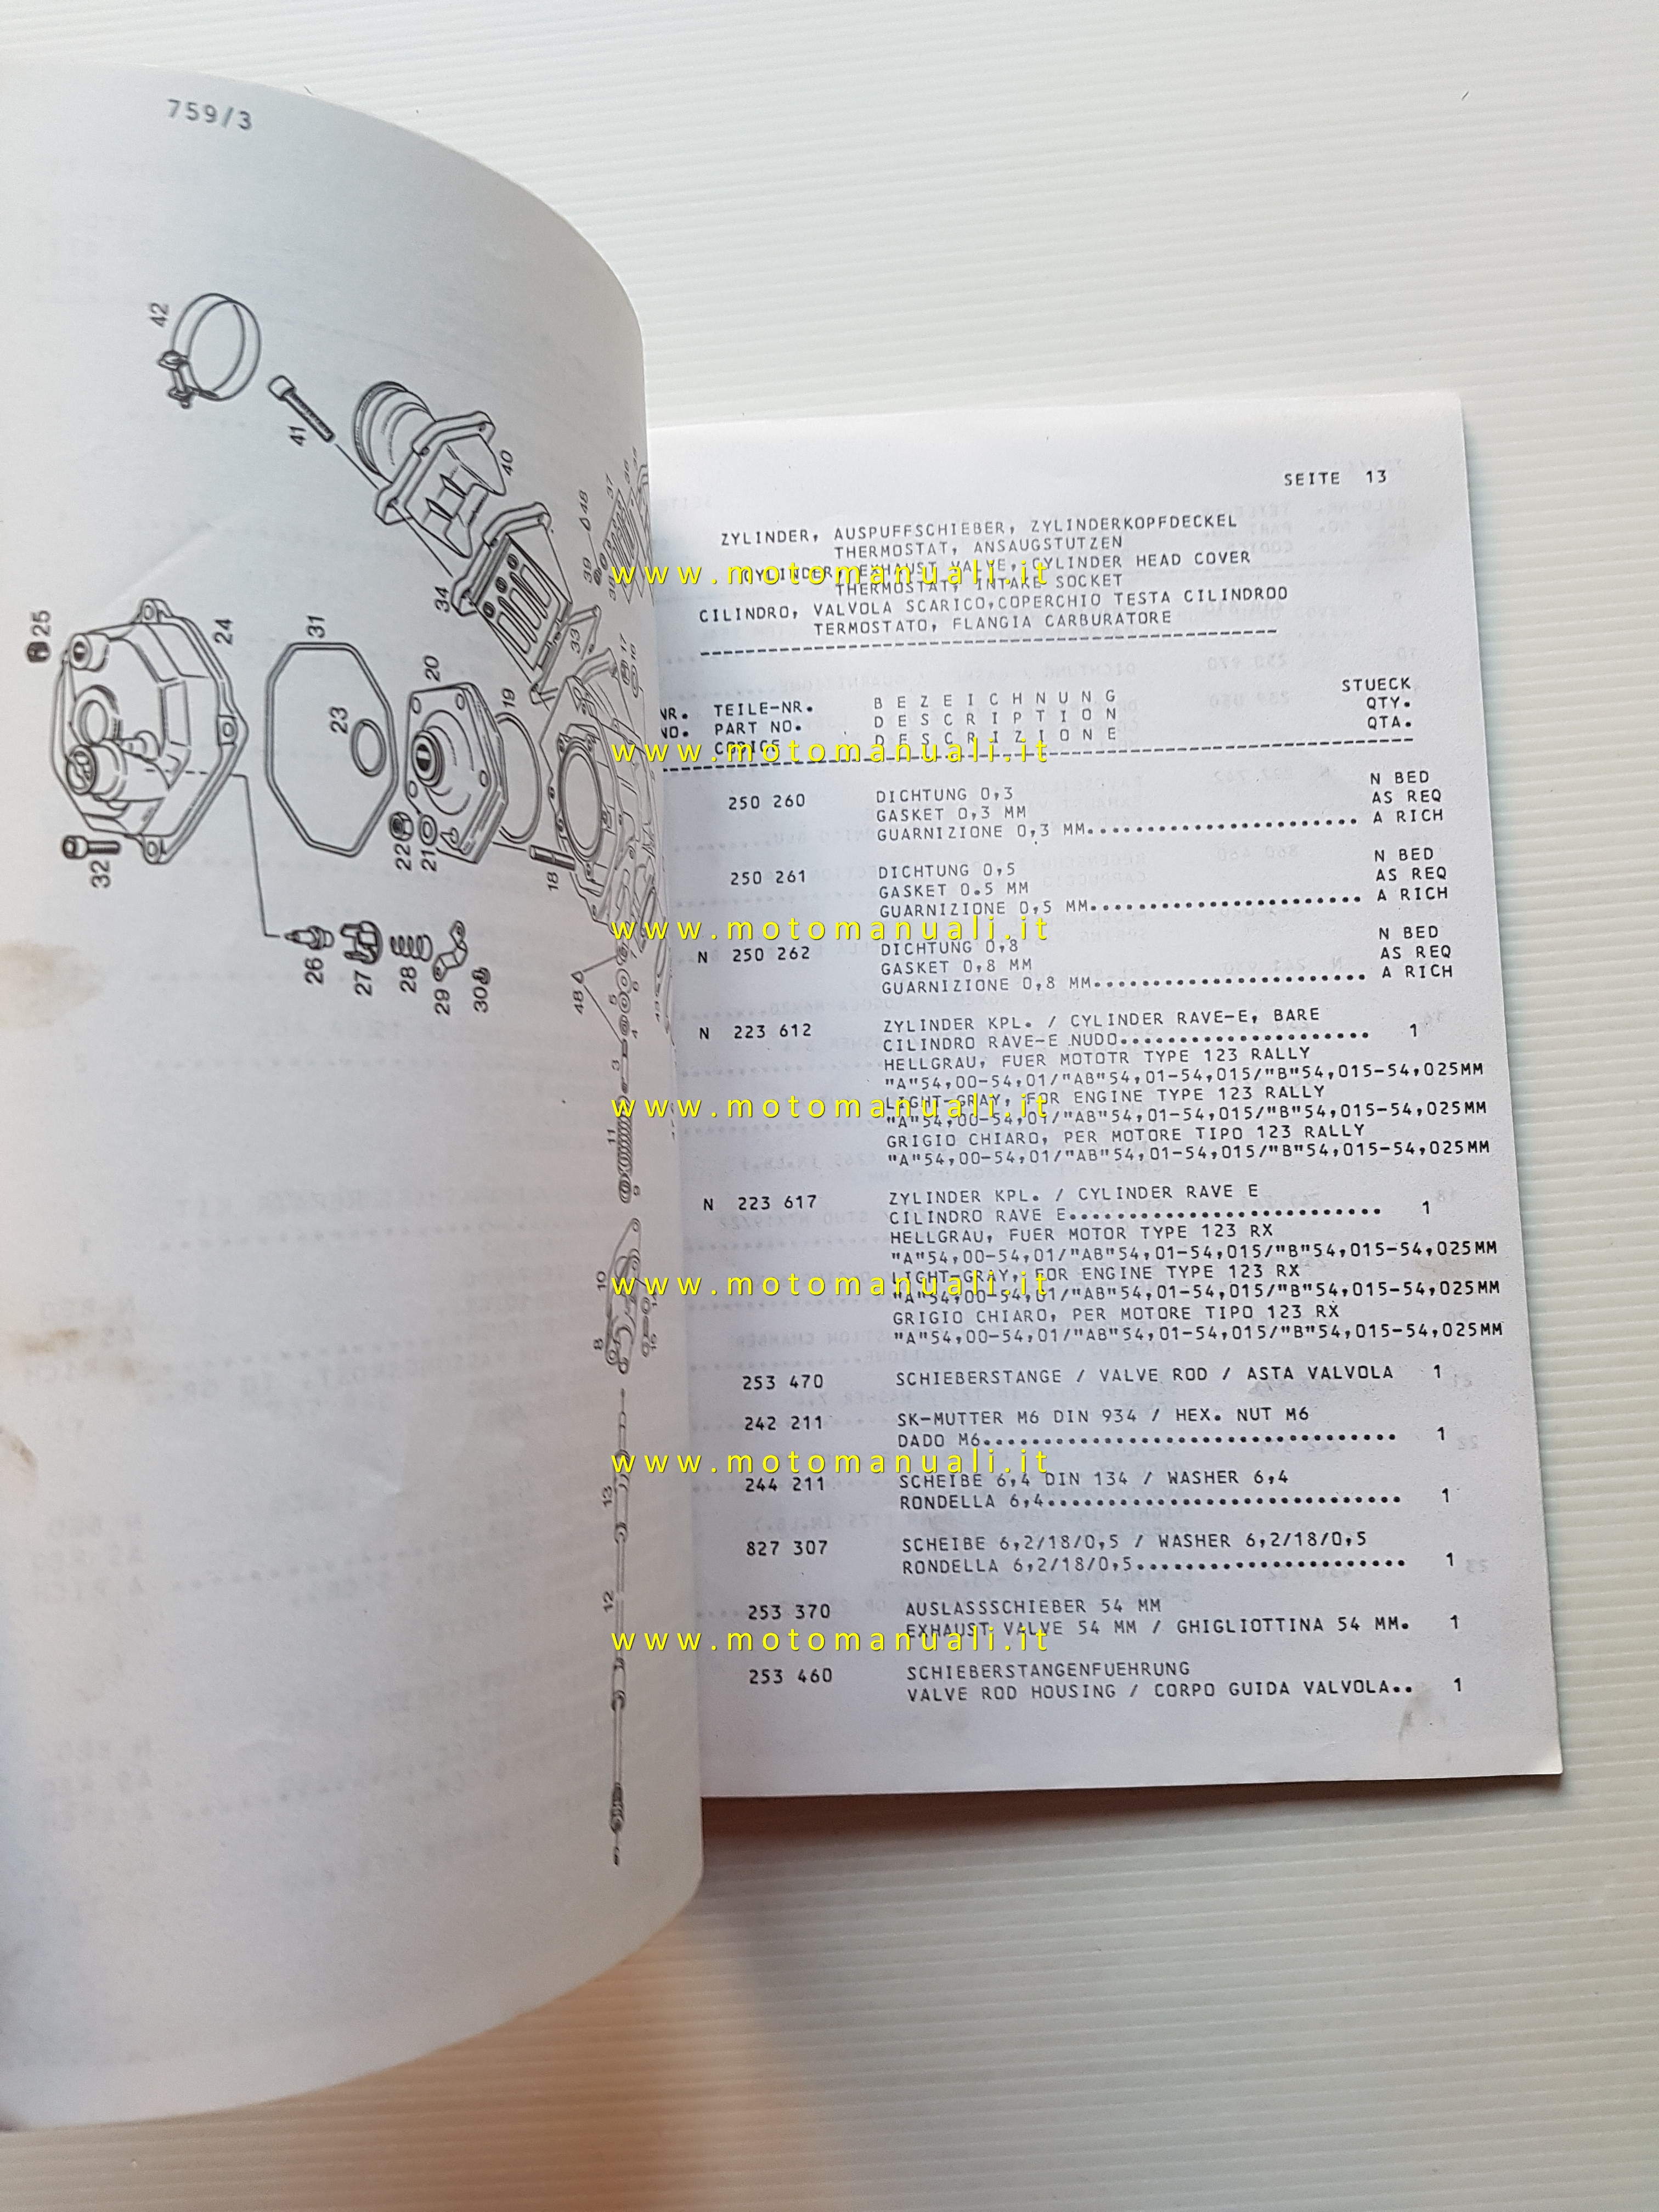 759/3
42
41
40
48
37
36
35
39
38
34
33
25
24
31
20
19
17
16
23
22
21
32
18
26
27
28
29
30
48
5
6
7
4
3
11
9
10
8
15
13
12
SEITE 13
ZYLINDER, AUSPUFFSCHIEBER, ZYLINDERKOPFDECKEL
THERMOSTAT, ANSAUGSTUTZEN
CYLINDER, EXHAUST VALVE, CYLINDER HEAD COVER
THERMOSTAT, INTAKE SOCKET
CILINDRO, VALVOLA SCARICO,COPERCHIO TESTA CILINDROO
TERMOSTATO, FLANGIA CARBURATORE
NR. TEILE-NR. B E Z E I C H N U N G STUECK
NO. PART NO. D E S C R I P T I O N QTY.
CODICE D E S C R I Z I O N E QTA.
250 260 DICHTUNG 0,3 N BED
GASKET 0,3 MM AS REQ
GUARNIZIONE 0,3 MM....................... A RICH
250 261 DICHTUNG 0,5 N BED
GASKET 0.5 MM AS REQ
GUARNIZIONE 0,5 MM....................... A RICH
N 250 262 DICHTUNG 0,8 N BED
GASKET 0,8 MM AS REQ
GUARNIZIONE 0,8 MM....................... A RICH
N 223 612 ZYLINDER KPL. / CYLINDER RAVE-E, BARE
CILINDRO RAVE-E NUDO..................... 1
HELLGRAU, FUER MOTOTR TYPE 123 RALLY
"A"54,00-54,01/"AB"54,01-54,015/"B"54,015-54,025MM
LIGHT-GRAY, FOR ENGINE TYPE 123 RALLY
"A"54,00-54,01/"AB"54,01-54,015/"B"54,015-54,025MM
GRIGIO CHIARO, PER MOTORE TIPO 123 RALLY
"A"54,00-54,01/"AB"54,01-54,015/"B"54,015-54,025MM
N 223 617 ZYLINDER KPL. / CYLINDER RAVE E
CILINDRO RAVE E.......................... 1
HELLGRAU, FUER MOTOR TYPE 123 RX
"A"54,00-54,01/"AB"54,01-54,015/"B"54,015-54,025MM
LIGHT-GRAY, FOR ENGINE TYPE 123 RX
"A"54,00-54,01/"AB"54,01-54,015/"B"54,015-54,025MM
GRIGIO CHIARO, PER MOTORE TIPO 123 RX
"A"54,00-54,01/"AB"54,01-54,015/"B"54,015-54,025MM
253 470 SCHIEBERSTANGE / VALVE ROD / ASTA VALVOLA 1
242 211 SK-MUTTER M6 DIN 934 / HEX. NUT M6
DADO M6................................... 1
244 211 SCHEIBE 6,4 DIN 134 / WASHER 6,4
RONDELLA 6,4.............................. 1
827 307 SCHEIBE 6,2/18/0,5 / WASHER 6,2/18/0,5
RONDELLA 6,2/18/0,5....................... 1
253 370 AUSLASSSCHIEBER 54 MM
EXHAUST VALVE 54 MM / GHIGLIOTTINA 54 MM. 1
253 460 SCHIEBERSTANGENFUEHRUNG
VALVE ROD HOUSING / CORPO GUIDA VALVOLA.. 1
www.motomanuali.it
www.motomanuali.it
www.motomanuali.it
www.motomanuali.it
www.motomanuali.it
www.motomanuali.it
www.motomanuali.it